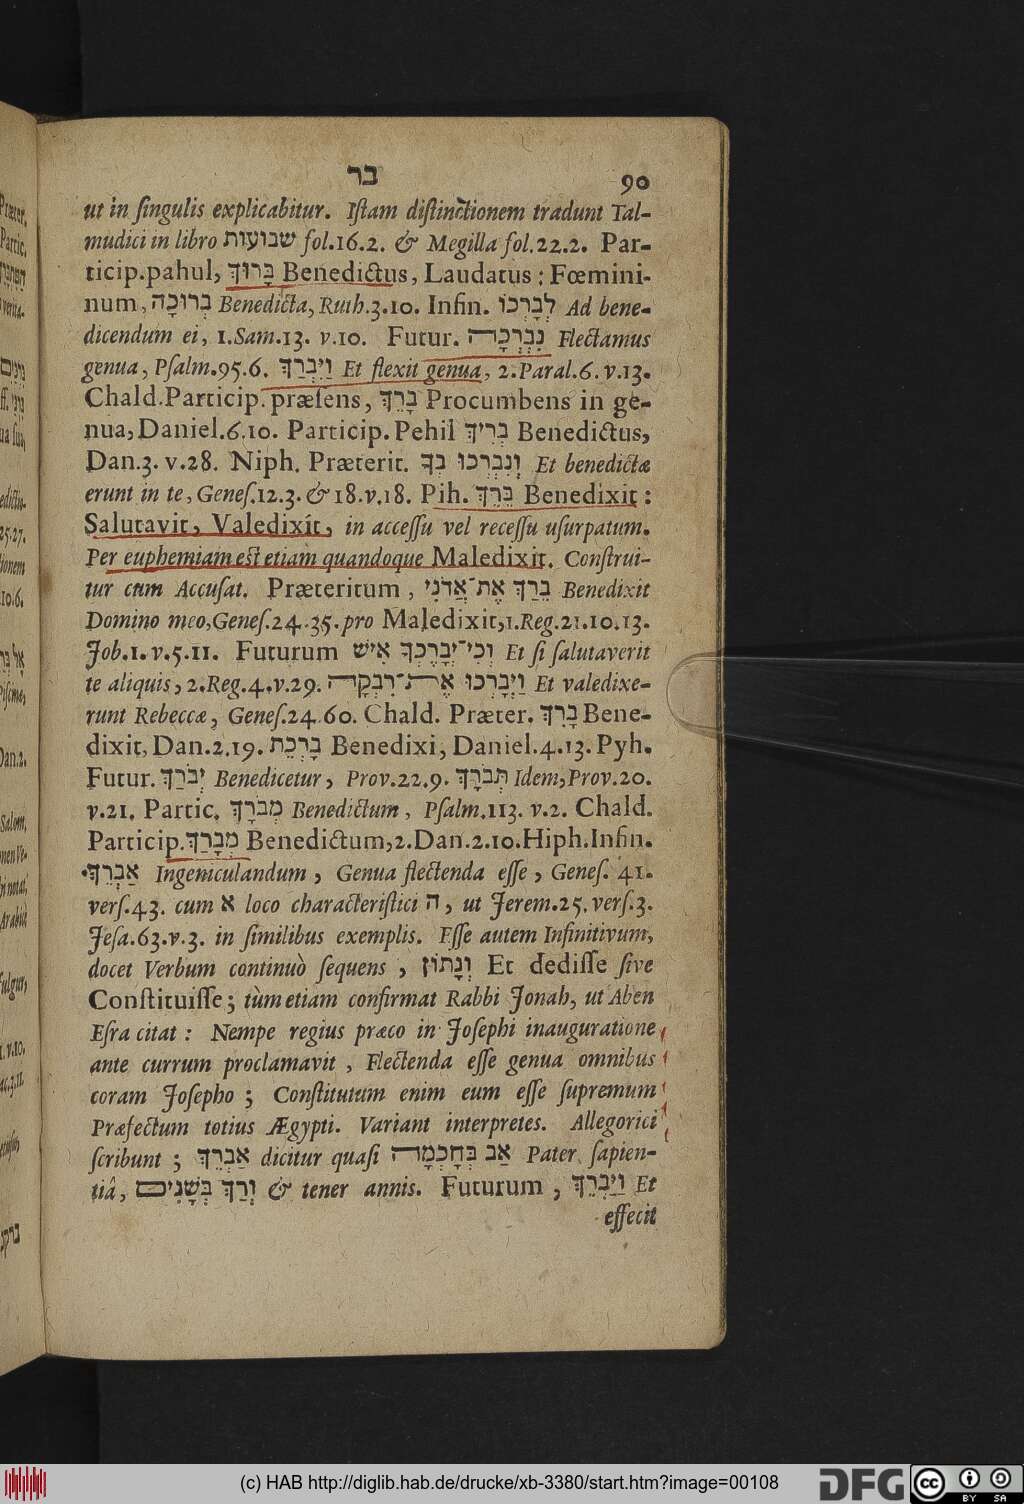 בר 90
ut in ſingulis explicabitur. Iſtam diſtinctionem tradunt Tal-
mudici in libro שבועות fol.16.2. & Megilla fol.22.2. Par-
ticip.pahul, בָּרוּךְ Benedictus, Laudatus: Fœmini-
num, בְרוּכָה Benedicta, Ruth.3.10. Infin. לְבָרְכוֹ Ad bene-
dicendum ei, 1.Sam.13. v.10. Futur. נִבְרְכָה Flectamus
genua, Pſalm.95.6. וַיִּבְרַךְ Et flexit genua, 2.Paral.6.v.13.
Chald.Particip.præſens, בָּרֵךְ Procumbens in ge-
nua, Daniel.6.10. Particip.Pehil בְּרִיךְ Benedictus,
Dan.3. v.28. Niph. Præterit. וְנִבְרְכוּ בְךָ Et benedictæ
erunt in te, Geneſ.12.3.& 18.v.18. Pih. בֵּרֵךְ Benedixit:
Salutavit, Valedixit, in acceſſu vel receſſu uſurpatum.
Per euphemiam est etiam quandoque Maledixit. Conſtrui-
tur cum Accuſat. Præteritum, בֵּרַךְ אֶת־אֲדֹנִי Benedixit
Domino meo, Geneſ.24.35. pro Maledixit, 1.Reg.21.10.13.
Job.1.v.5.11. Futurum וְכִי־יְבָרֶכְךָ אִישׁ Et ſi ſalutaverit
te aliquis, 2.Reg.4.v.29. וַיְבָרְכוּ אֶת־רִבְקָה Et valedixe-
runt Rebeccæ, Geneſ.24.60. Chald. Præter. בָּרִךְ Bene-
dixit, Dan.2.19. בָּרְכֵת Benedixi, Daniel.4.13. Pyh.
Futur. יְבֹרַךְ Benedicetur, Prov.22.9. תְּבֹרָךְ Idem, Prov.20.
v.21. Partic. מְבֹרָךְ Benedictum, Pſalm.113. v.2. Chald.
Particip. מְבָרַךְ Benedictum, 2.Dan.2.10. Hiph.Infin.
אַבְרֵךְ Ingeniculandum, Genua flectenda eſſe, Geneſ. 41.
verſ.43. cum א loco characteriſtici ה, ut Jerem.25. verſ.3.
Jeſa.63.v.3. in ſimilibus exemplis. Eſſe autem Infinitivum,
docet Verbum continuò ſequens, וְנָתוֹן Et dediſſe ſive
Conſtituiſſe; tùm etiam confirmat Rabbi Jonah, ut Aben
Eſra citat: Nempe regius præco in Joſephi inauguratione
ante currum proclamavit, Flectenda eſſe genua omnibus
coram Joſepho; Conſtitutum enim eum eſſe ſupremum
Præfectum totius Ægypti. Variant interpretes. Allegorici
ſcribunt; אַבְרֵךְ dicitur quaſi אַב בְּחָכְמָה Pater ſapien-
tiâ, וְרַךְ בְּשָׁנִים & tener annis. Futurum, וַיַּבְרֵךְ Et
effecit
(c) HAB http://diglib.hab.de/drucke/xb-3380/start.htm?image=00108
DFG
cc BY SA